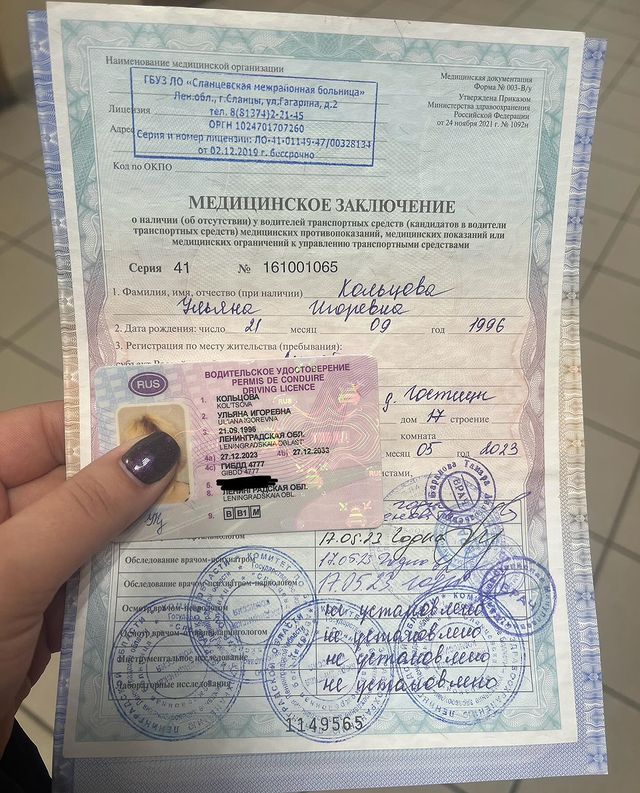 Наименование медицинской организации
ГБУЗ ЛО «Сланцевская межрайонная больница»
Лен.обл., г.Сланцы, ул.Гагарина, д.2
тел. 8(81374)2-21-45
ОРГН 1024701707260
Серия и номер лицензии: ЛО-41-01149-47/00328134
от 02.12.2019 г. бессрочно
Лицензия
Адрес
Код по ОКПО
Медицинская документация
Форма № 003-В/у
Утверждена Приказом
Министерства здравоохранения
Российской Федерации
от 24 ноября 2021 г. № 1092н
МЕДИЦИНСКОЕ ЗАКЛЮЧЕНИЕ
о наличии (об отсутствии) у водителей транспортных средств (кандидатов в водители
транспортных средств) медицинских противопоказаний, медицинских показаний или
медицинских ограничений к управлению транспортными средствами
Серия 41 № 161001065
1. Фамилия, имя, отчество (при наличии) Кольцова
Ульяна Игоревна
2. Дата рождения: число 21 месяц 09 год 1996
3. Регистрация по месту жительства (пребывания):
д. Гостицы
дом 17 строение
комната
месяц 05 год 2023
RUS
ВОДИТЕЛЬСКОЕ УДОСТОВЕРЕНИЕ
PERMIS DE CONDUIRE
DRIVING LICENCE
1. КОЛЬЦОВА
KOLTSOVA
2. УЛЬЯНА ИГОРЕВНА
ULIANA IGOREVNA
3. 21.09.1996
ЛЕНИНГРАДСКАЯ ОБЛ.
LENINGRADSKAIA OBLAST
4a) 27.12.2023 4b) 27.12.2033
4c) ГИБДД 4777
GIBDD 4777
5.
8. ЛЕНИНГРАДСКАЯ ОБЛ.
LENINGRADSKAIA OBL.
9. B B1 M
17.05.23 Годна
Обследование врачом-психиатром 17.05.23
Обследование врачом-психиатром-наркологом 17.05.23
Осмотр врачом-неврологом не установлено
Осмотр врачом-оториноларингологом не установлено
Инструментальное исследование не установлено
Лабораторные исследования не установлено
1149565